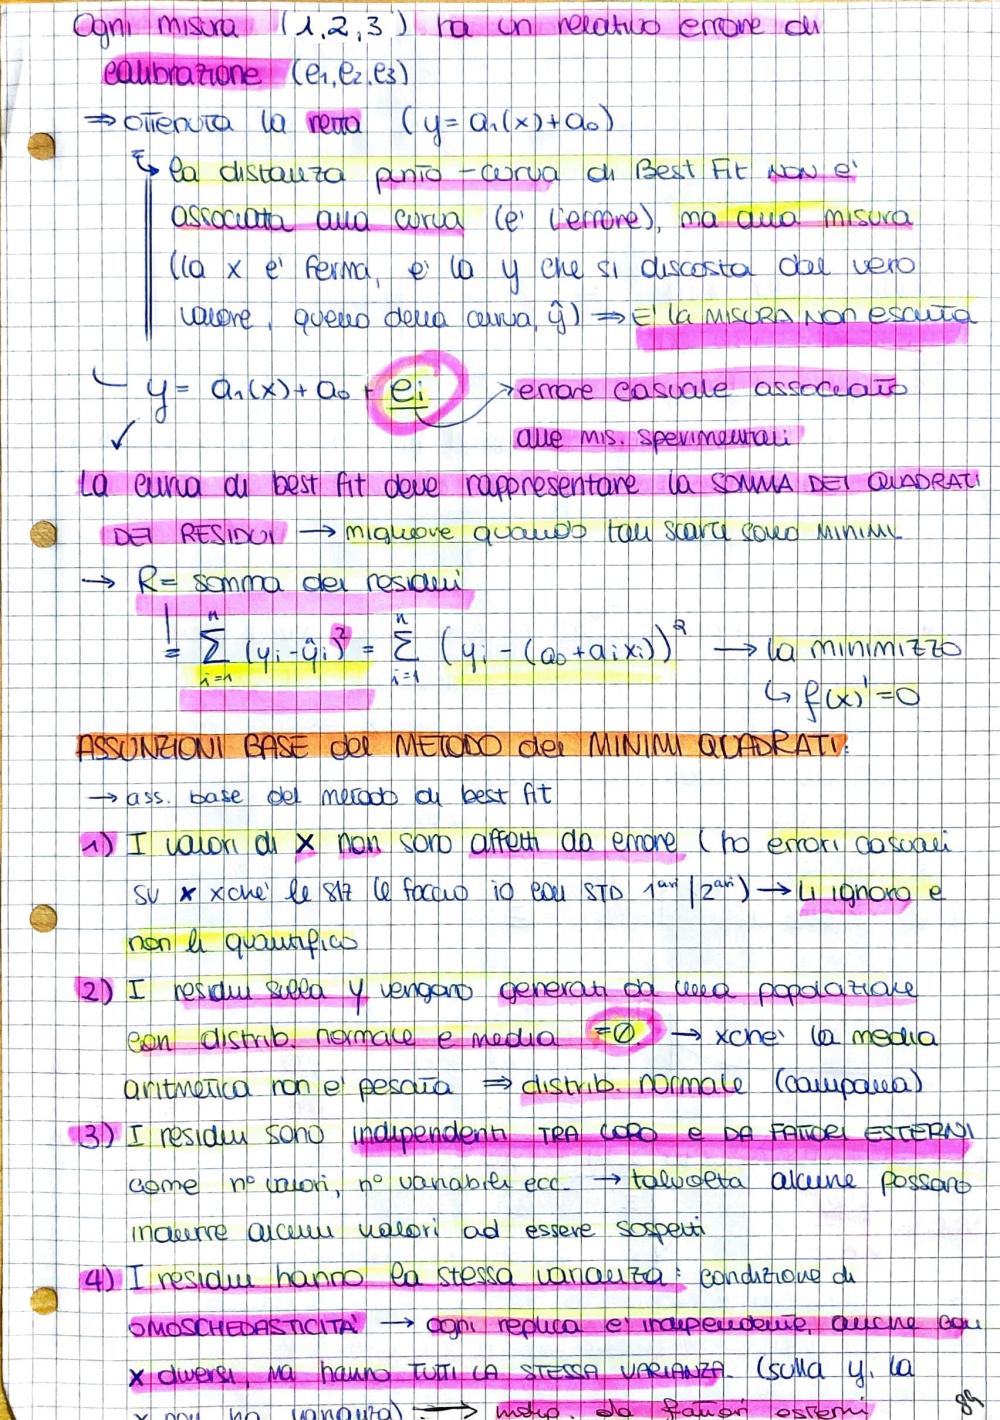 Ogni misura (1,2,3) ha un relativo errore di
calibrazione (e₁,e₂,e₃)
⇒ ottenuta la retta (y= a₁(x)+a₀)
↳ la distanza punto-curva di Best Fit NON e'
associata alla curva (e' l'errore), ma alla misura
(la x e' ferma, e' la y che si discosta dal vero
valore, quello della curva, ŷ) ⇒ E' la MISURA NON esatta
y= a₁(x)+a₀ + eᵢ → errore casuale associato
alle mis. sperimentali
La curva di best fit deve rappresentare la SOMMA DEI QUADRATI
DEI RESIDUI → migliore quando tali scarti sono MINIMI
→ R= somma dei residui
= Σⁿᵢ₌₁ (yᵢ-ŷᵢ)² = Σⁿᵢ₌₁ (yᵢ - (a₀+aᵢxᵢ))² → la minimizzo
↳ f(x)'=0
ASSUNZIONI BASE del METODO dei MINIMI QUADRATI:
→ ass. base del metodo di best fit
1) I valori di x non sono affetti da errore (ho errori casuali
su x xche' le slz le faccio io con STD 1ᵃʳⁱ/2ᵃʳⁱ) → li ignoro e
non li quantifico
2) I residui sulla y vengono generati da una popolazione
con distrib. normale e media =0 → xche' la media
aritmetica non e' pesata ⇒ distrib. normale (campana)
3) I residui sono indipendenti TRA LORO e DA FATTORI ESTERNI
come n° valori, n° variabili ecc. → talvolta alcune possono
indurre alcuni valori ad essere sospetti
4) I residui hanno la stessa varianza: condizione di
OMOSCHEDASTICITA' → ogni replica e' indipendente, anche con
x diversi, ma hanno TUTTI LA STESSA VARIANZA. (sulla y, la
x non ha varianza) → indip. da fattori esterni
89